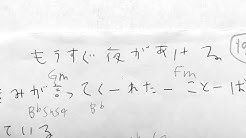 もうすぐ夜があける
Gm Fm
きみが言ってくーれたーことーば
B♭sus4 B♭
ている